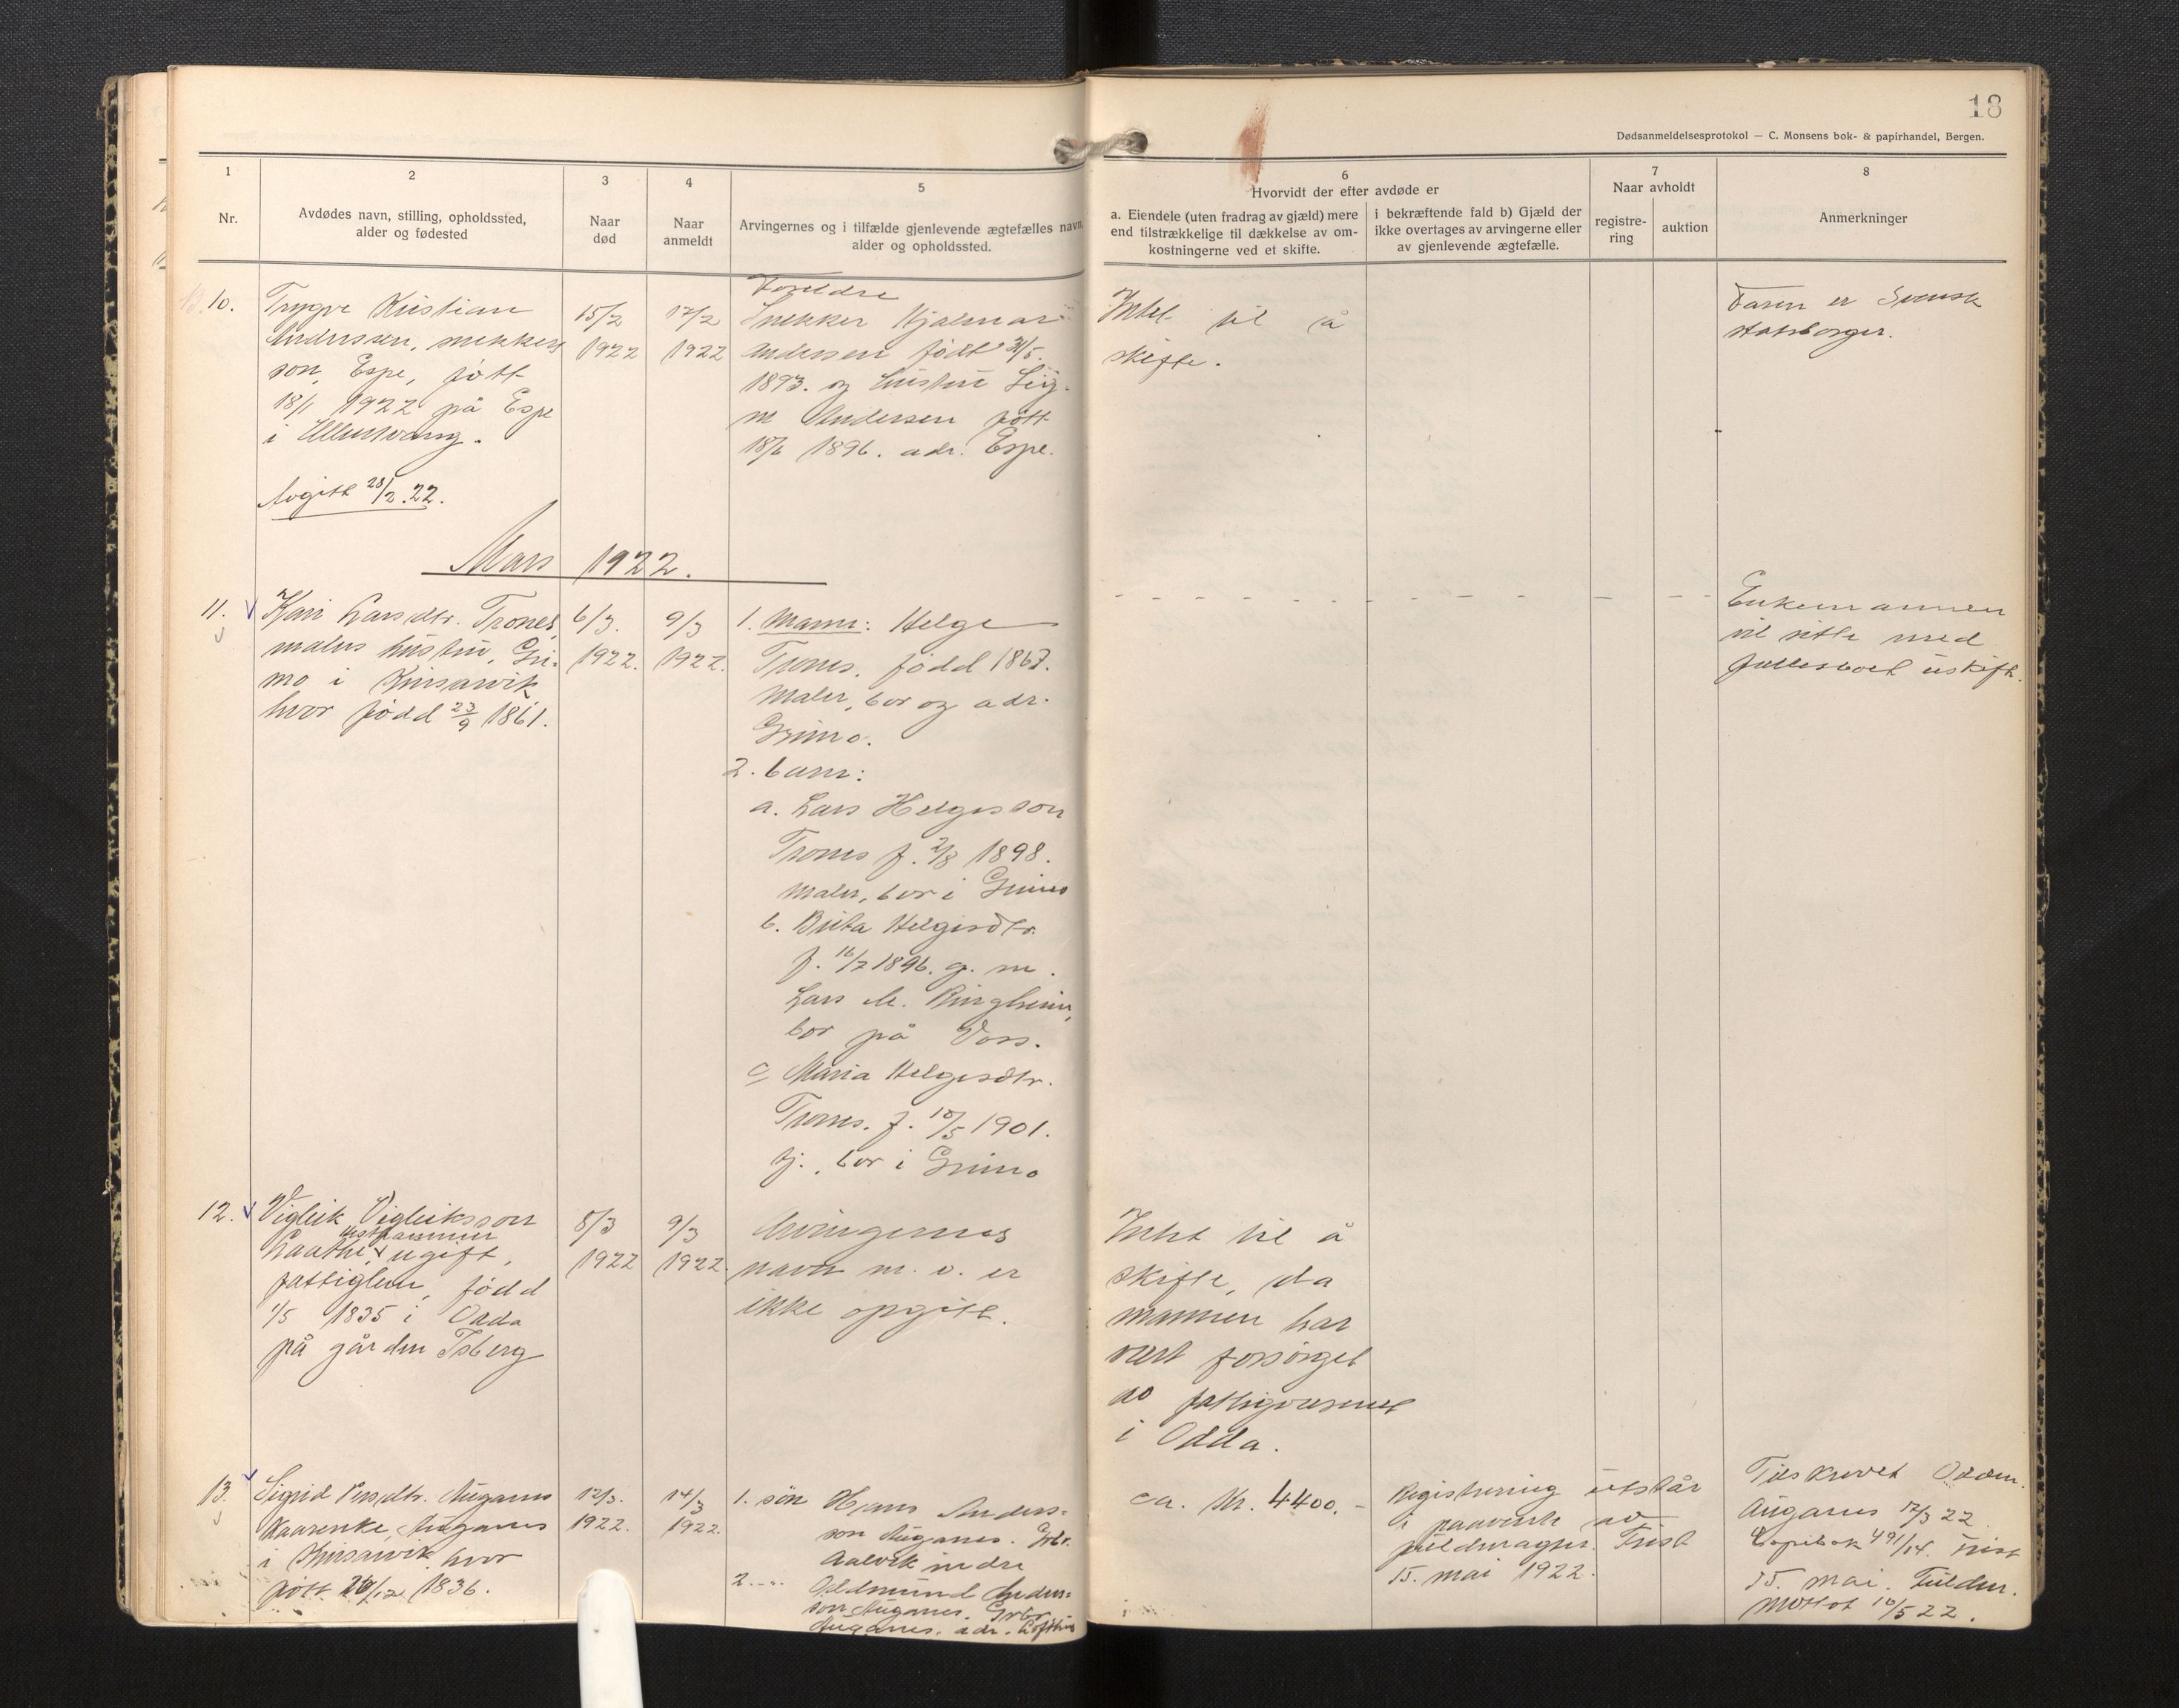 18
Dødsanmeldelsesprotokol — C. Monsens bok- & papirhandel, Bergen.
1
Nr.
2
Avdødes navn, stilling, opholdssted,
alder og fødested
3
Naar
død
4
Naar
anmeldt
5
Arvingernes og i tilfælde gjenlevende ægtefælles navn,
alder og opholdssted.
6
Hvorvidt der efter avdøde er
a. Eiendele (uten fradrag av gjæld) mere
end tilstrækkelige til dækkelse av om-
kostningerne ved et skifte.
i bekræftende fald b) Gjæld der
ikke overtages av arvingerne eller
av gjenlevende ægtefælle.
7
Naar avholdt
registre-
ring
auktion
8
Anmerkninger
10.
Trygve Kristian
Anderssen, snekkers
son, Espe, født
18/1 1922 på Espe
i Ullensvang.
Avgitt 28/2.22.
15/2
1922
17/2
1922
Foreldre
Snekker Hjalmar
Andersen født 31/5.
1893. og hustru Sig-
ne Andersen født
18/6 1896. adr. Espe.
Intet til å
skifte.
Faren er Svensk
statsborger.
Mars 1922.
11.
Kari Larsdtr. Trones,
malers hustru, Gri-
mo i Kinsarvik
hvor fødd 23/9 1861.
6/3.
1922.
9/3
1922.
1. Mann: Helge
Trones. fødd 1867.
Maler, bor og adr.
Grimo.
2. barn:
a. Lars Helgesson
Trones f. 2/8 1898.
Maler, bor i Grimo
b. Brita Helgesdtr.
f. 16/7 1896. g. m.
Lars M. Ringheim,
bor på Voss.
c Maria Helgesdtr.
Trones. f. 10/5 1901.
tj., bor i Grimo
Enkemannen
vil sitte med
fellesboet uskift.
12.
Vigleik Vigleiksson
ugift,
fattiglem, fødd
1/5 1835 i Odda
på gården Isberg
8/3
1922
9/3
1922.
Arvingernes
navn m. v. er
ikke opgitt.
Intet til å
skifte, da
mannen har
vært forsørget
av fattigvesenet
i Odda.
13.
Sigrid Persdtr. Auganes
Kaarenke, Auganes
i Kinsarvik hvor
født 26/12 1836.
12/3.
1922.
14/3
1922.
1. søn Hans Anders-
son Auganes. Grbr.
Aalvik indre
2. Oddmund Anders-
son Auganes. Grbr.
Auganes. adr. Lofthus
ca. Kr. 4400.-
Registrering utstår
i paavente av
fuldmagter. Frist
15. mai 1922.
Tilskrevet Oddm.
Auganes 17/3 22
Kopibok 491/14. Frist
15. mai. Fuldm.
mottat 10/5 22.